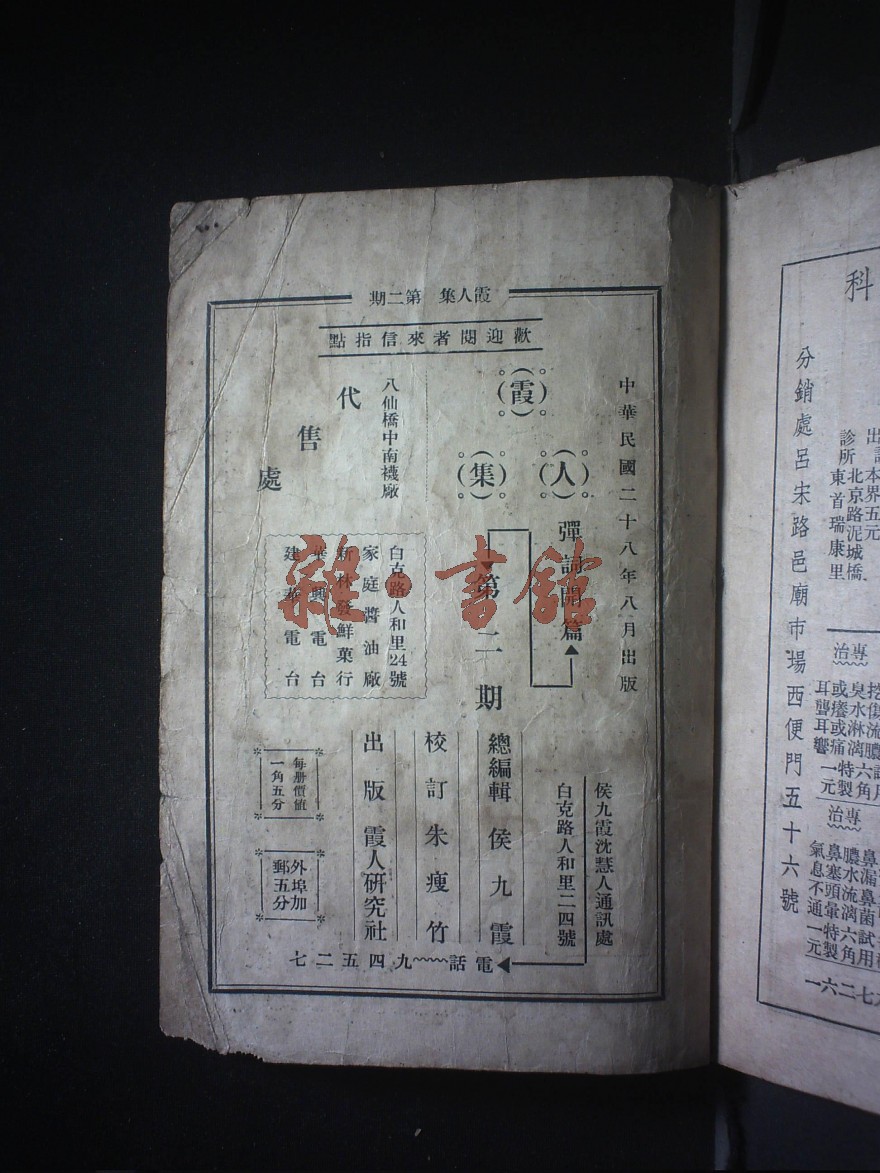 霞人集 第二期
歡迎閱者來信指點
中華民國二十八年八月出版
霞
人
集
彈詞開篇
第二期
八仙橋中南襪廠
代售處
白克路人和里24號
家庭醬油廠
新林發鮮菓行
華興電台
建華電台
侯九霞沈慧人通訊處
白克路人和里二四號
電話 九四五二七
總編輯 侯九霞
校訂 朱瘦竹
出版 霞人研究社
每冊價值
一角五分
外埠加
郵五分
雜·書館
科
診所北京路泥城橋
東首瑞康里
分銷處呂宋路邑廟市場西便門五十六號
專治
耳聾耳響一元
專治
氣息不通一元